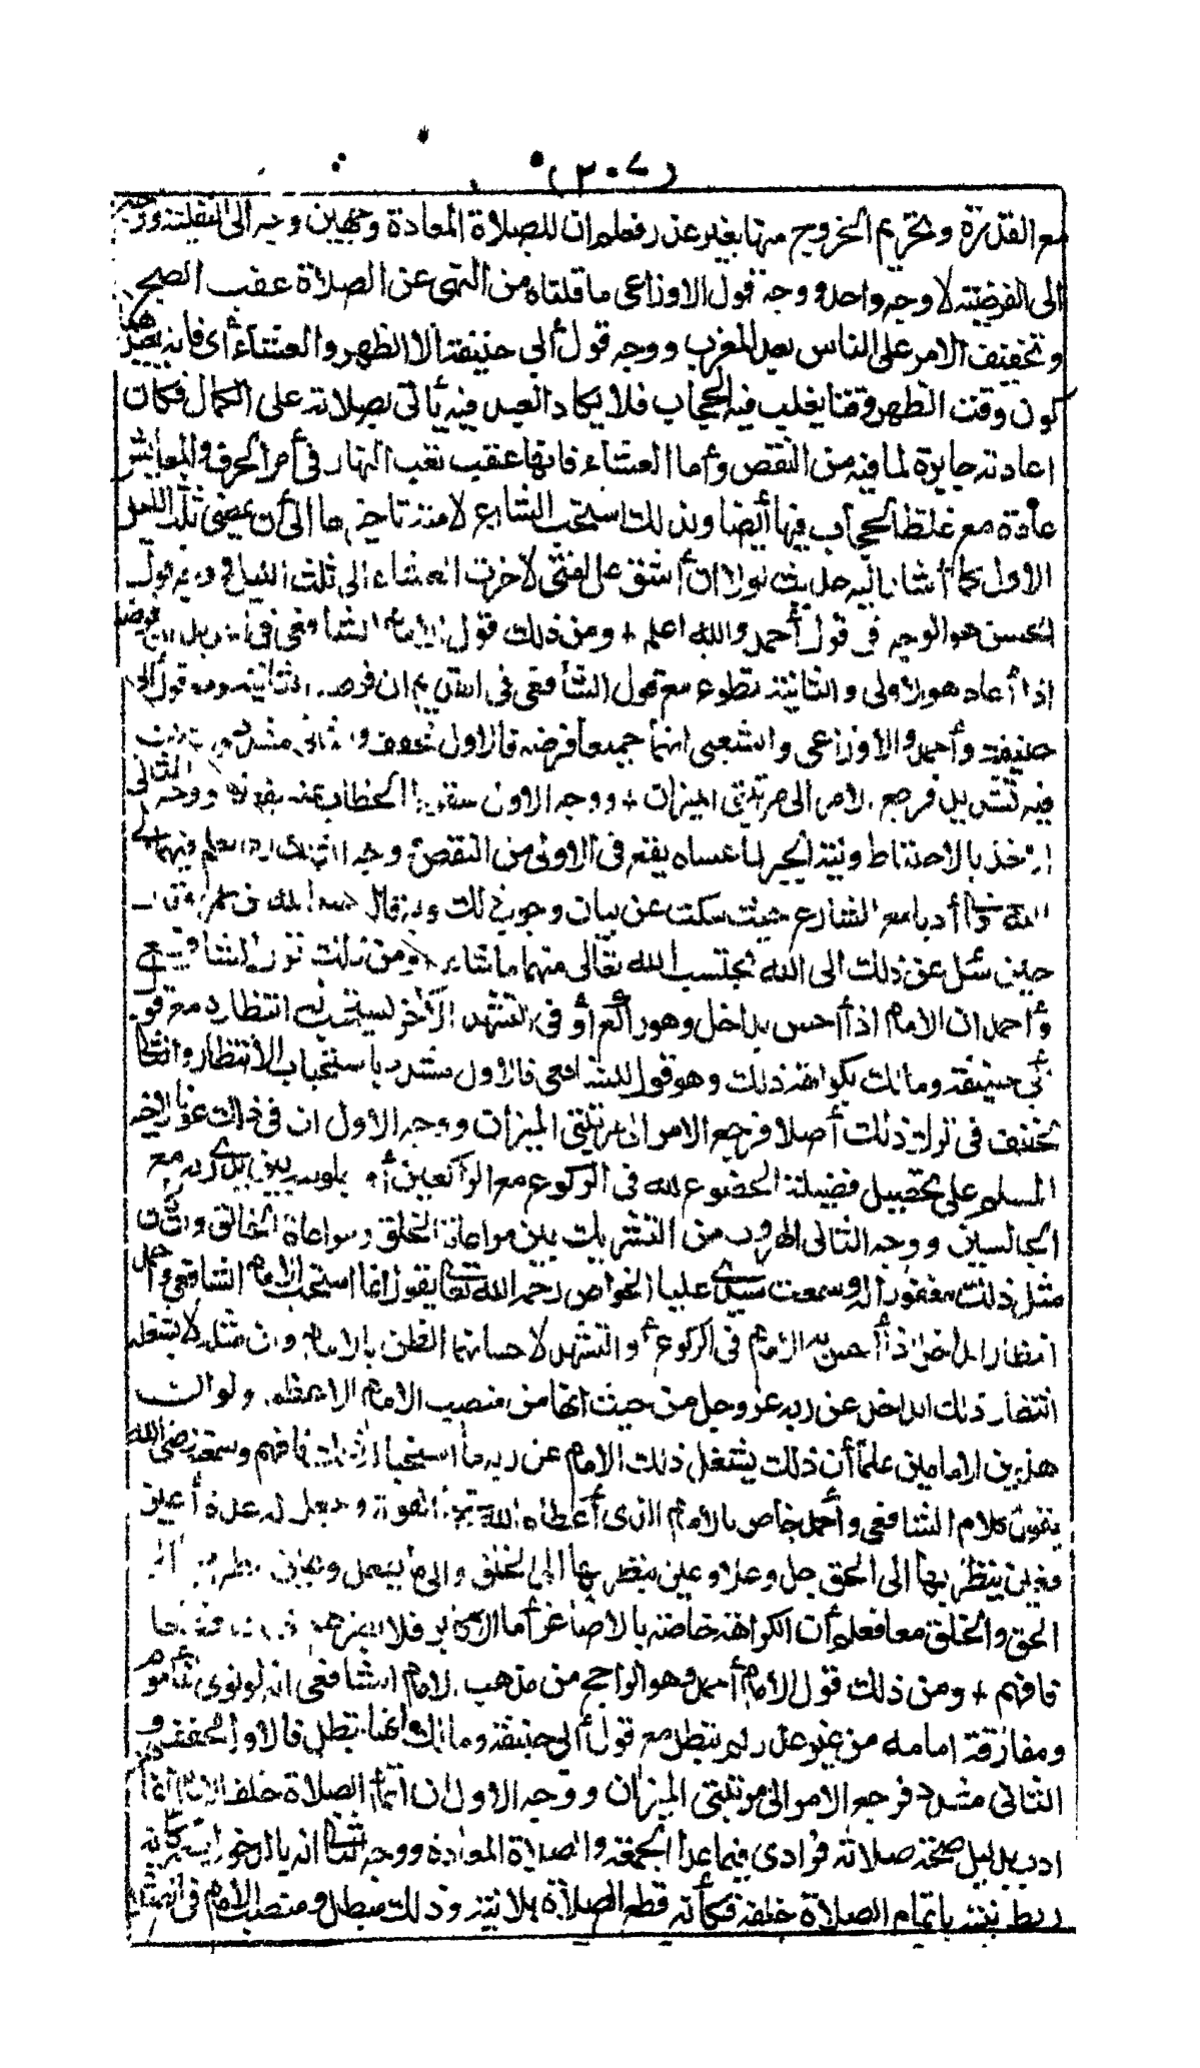 (٢٠٧)
مع القدرة وتحريم الخروج منها بغير عذر فعلم ان للصلاة المعادة وجهين وجه الى النفلية ووجه
الى الفرضية لا وجه واحد ووجه قول الاوزاعى ما قلناه من النهى عن الصلاة عقب الصبح
وتخفيف الامر على الناس بعد المغرب ووجه قول أبى حنيفة الا الظهر والعشاء أى فانه يعيدهما
كون وقت الظهر وقتا يغلب فيه الحجاب فلا يكاد العبد فيه يأتى بصلاته على الكمال فكان
اعادته جايزة لما فيه من النقص وأما العشاء فانها عقب تعب النهار فى أمر الحرف والمعايش
عادة مع غلظ الحجاب فيها أيضا ولذلك استحب الشارع لامته تاخيرها الى أن يمضى ثلث الليل
الاول كما أشار اليه حديث لولا ان أشق على أمتى لاخرت العشاء الى ثلث الليل وقول
الحسن هو الوجه فى قول أحمد والله اعلم + ومن ذلك قول الامام الشافعى فى الجديد ان فرضه
اذا أعاد هو الاولى والثانية تطوع مع قول الشافعى فى القديم ان فرضه الثانية ومع قول أبى
حنيفة وأحمد والاوزاعى والشعبى انهما جميعا فرضه فالاول مخفف والثانى مشدد
فيه تشديد فرجع الامر الى مرتبتى الميزان + ووجه الاول سقوط الخطاب عنه بفعلها ووجه الثانى
الاخذ بالاحتياط ونية الجبر لما عساه يقع فى الاولى من النقص ووجه الثالث
الله أدبا مع الشارع حيث سكت عن بيان وجوب ذلك وبه قال عبد الله بن عمر
حين سئل عن ذلك الى الله يحتسب الله تعالى منهما ما شاء + ومن ذلك قول الشافعى
وأحمد ان الامام اذا أحس بداخل وهو راكع أو فى التشهد الآخر يستحب له انتظاره مع قول
أبى حنيفة ومالك بكراهة ذلك وهو قول للشافعى فالاول مشدد باستحباب الانتظار والثانى
مخفف فى ترك ذلك أصلا فرجع الامر الى مرتبتى الميزان ووجه الاول ان فى ذلك عونا لاخيه
المسلم على تحصيل فضيلة الخضوع لله فى الركوع مع الراكعين أو جلوسه بين يدى ربه مع
الجالسين ووجه الثانى الهروب من التشريك بين مراعاة الخلق ومراعاة الخالق وان كان
مثل ذلك مغفورا له وسمعت سيدى عليا الخواص رحمه الله تعالى يقول انما استحب الامام الشافعى وأحمد
انتظار الداخل اذا أحس به الامام فى الركوع أو التشهد لاحسانهما الظن بالامام وان مثله لا يشغله
انتظار ذلك الداخل عن ربه عز وجل من حيث انها من منصب الامام الاعظم ولو ان
هذين الامامين علما أن ذلك يشغل ذلك الامام عن ربه ما استحبا ذلك فافهم وسمعته رضى الله
يقول كلام الشافعى وأحمد خاص بالامام الذى أعطاه الله تعالى القوة وجعل له عدة أعين
فعين ينظر بها الى الحق جل وعلا وعين ينظر بها الى الخلق والى ما يعمل وعين ينظر بها الى
الحق والخلق معا فعلم أن الكراهة خاصة بالاصاغر أما الاكابر فلا
فافهم + ومن ذلك قول الامام أحمد وهو الراجح من مذهب الامام الشافعى انه لو نوى المأموم
ومفارقة امامه من غير عذر لم تبطل مع قول أبى حنيفة ومالك انها تبطل فالاول مخفف و
الثانى مشدد فرجع الامر الى مرتبتى الميزان ووجه الاول ان اتمام الصلاة خلف الامام انما هو
ادب بدليل صحة صلاته فرادى فيما عدا الجمعة والصلاة المعادة ووجه الثانى انه بالدخول
ربط نيته باتمام الصلاة خلفه فكأنه قطع الصلاة بلا نية وذلك مبطل ومنصب الامام فى